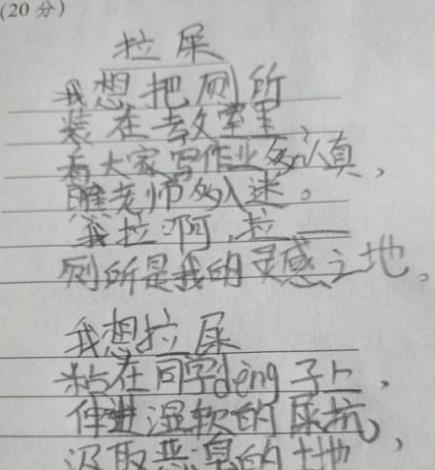 (20分)
拉屎
我想把厕所
装在教室里、
看大家写作业多认真,
瞧老师多入迷。
我拉啊,拉——
厕所是我的灵感之地。
我想拉屎
粘在同学dèng子上,
伸进湿软的屎坑,
汲取恶臭的土地,